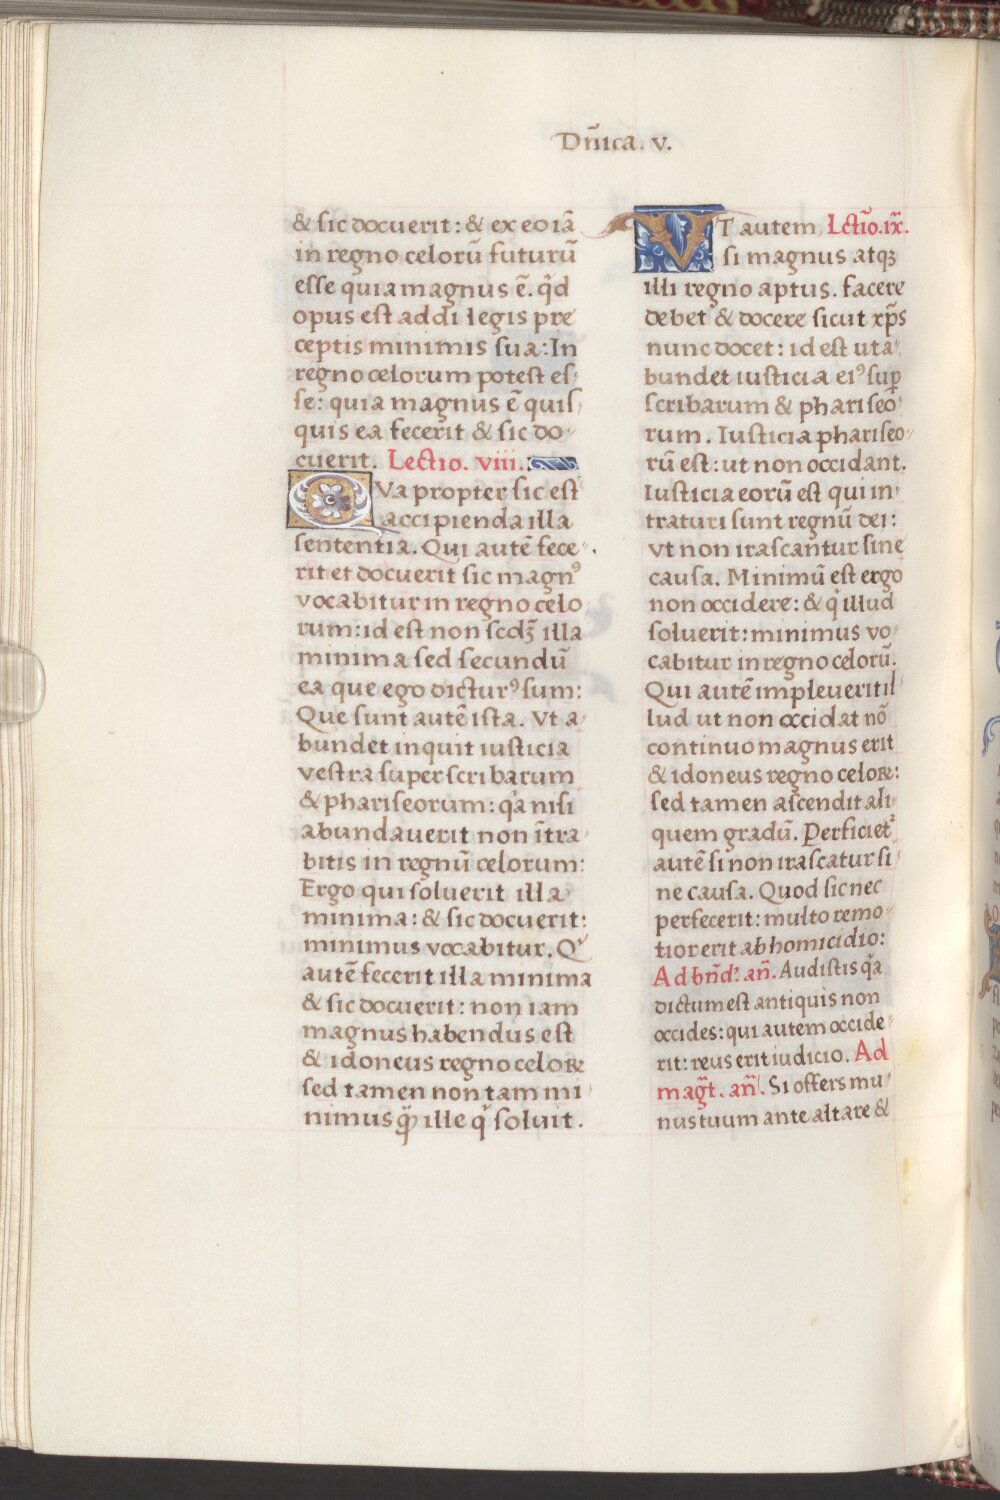 Dñica. v.
& sic docuerit: & ex eo iã
in regno celorũ futurũ
esse quia magnus ẽ. q̇d
opus est addi legis pre
ceptis minimis sua: In
regno celorum potest es-
se: quia magnus ẽ quis
quis ea fecerit & sic do-
cuerit. Lectio. viii.
QVa propter sic est
accipienda illa
sententia. Qui autẽ fece-
rit et docuerit sic magnꝰ
vocabitur in regno celo
rum: id est non scdꝫ illa
minima sed secundũ
ea que ego dicturꝰ sum:
Que sunt autẽ ista. Vt a-
bundet inquit iusticia
vestra super scribarum
& phariseorum: q̃a nisi
abundauerit non ĩtra-
bitis in regnũ celorum:
Ergo qui soluerit illa
minima: & sic docuerit:
minimus vocabitur. Qⁱ
autẽ fecerit illa minima
& sic docuerit: non iam
magnus habendus est
& idoneus regno celoꝝ
sed tamen non tam mi-
nimus q̃ꝫ ille qⁱ soluit.
VT autem Lctĩo. ix.
si magnus atqꝫ
illi regno aptus. facere
debet & docere sicut xp̃s
nunc docet: id est ut a-
bundet iusticia eiꝰ sup̃
scribarum & phariseo-
rum. Iusticia phariseo-
rũ est: ut non occidant.
Iusticia eorũ est qui in-
traturi sunt regnũ dei:
vt non irascantur sine
causa. Minimũ est ergo
non occidere: & qⁱ illud
soluerit: minimus vo-
cabitur in regno celorũ.
Qui autẽ impleuerit il-
lud ut non occidat nõ
continuo magnus erit
& idoneus regno celoꝝ:
sed tamen ascendit ali-
quem gradũ. Perficietᷣ
autẽ si non irascatur si-
ne causa. Quod sic nec
perfecerit: multo remo-
tior erit ab homicidio:
Ad bñd?. añ. Audistis q̃a
dictum est antiquis non
occides: qui autem occide-
rit: reus erit iudicio. Ad
mag̃t. añ. Si offers mu-
nus tuum ante altare &